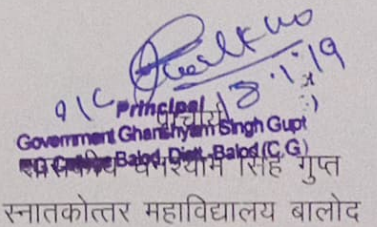 18.1.19
Principal
प्राचार्य
Government Ghanshyam Singh Gupt
PG College Balod, Distt.-Balod (C.G)
शासकीय घनश्याम सिंह गुप्त
स्नातकोत्तर महाविद्यालय बालोद